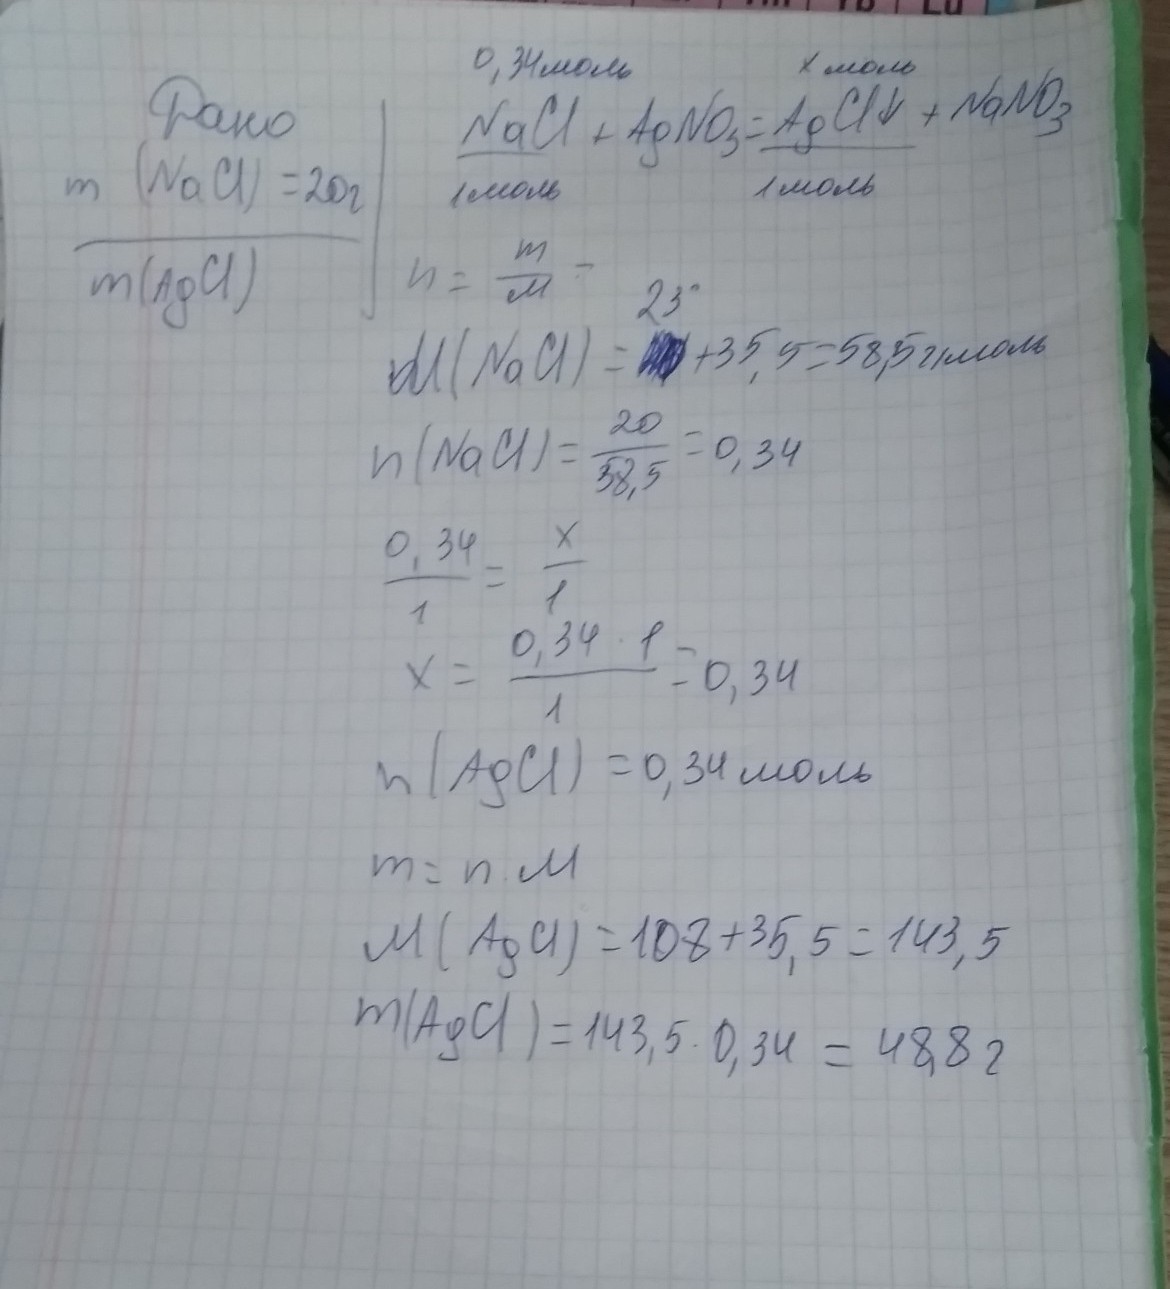 Yb Lu
0,34моль x моль
Дано
NaCl + AgNO₃ = AgCl↓ + NaNO₃
m (NaCl) = 20г
1моль 1моль
m(AgCl)
n = m/M =
23
M(NaCl) = +35,5=58,5г/моль
n(NaCl) = 20/58,5 = 0,34
0,34/1 = x/1
x = 0,34 · 1/1 = 0,34
n(AgCl) = 0,34 моль
m = n · M
M(AgCl) = 108+35,5 = 143,5
m(AgCl) = 143,5 · 0,34 = 48,8 г